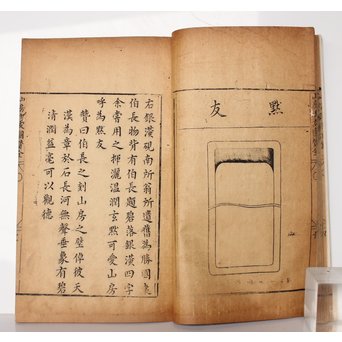 黙友
右銀漢硯南所翁所遺舊為勝國袁
伯長物背有伯長題碧落銀漢四字
余嘗用之揮灑温潤玄黙可愛山房
呼為黙友
贊曰伯長之刻山房之壁倬彼天
漢為章於石長河無聲垂象有碧
清潤益毫可以觀德